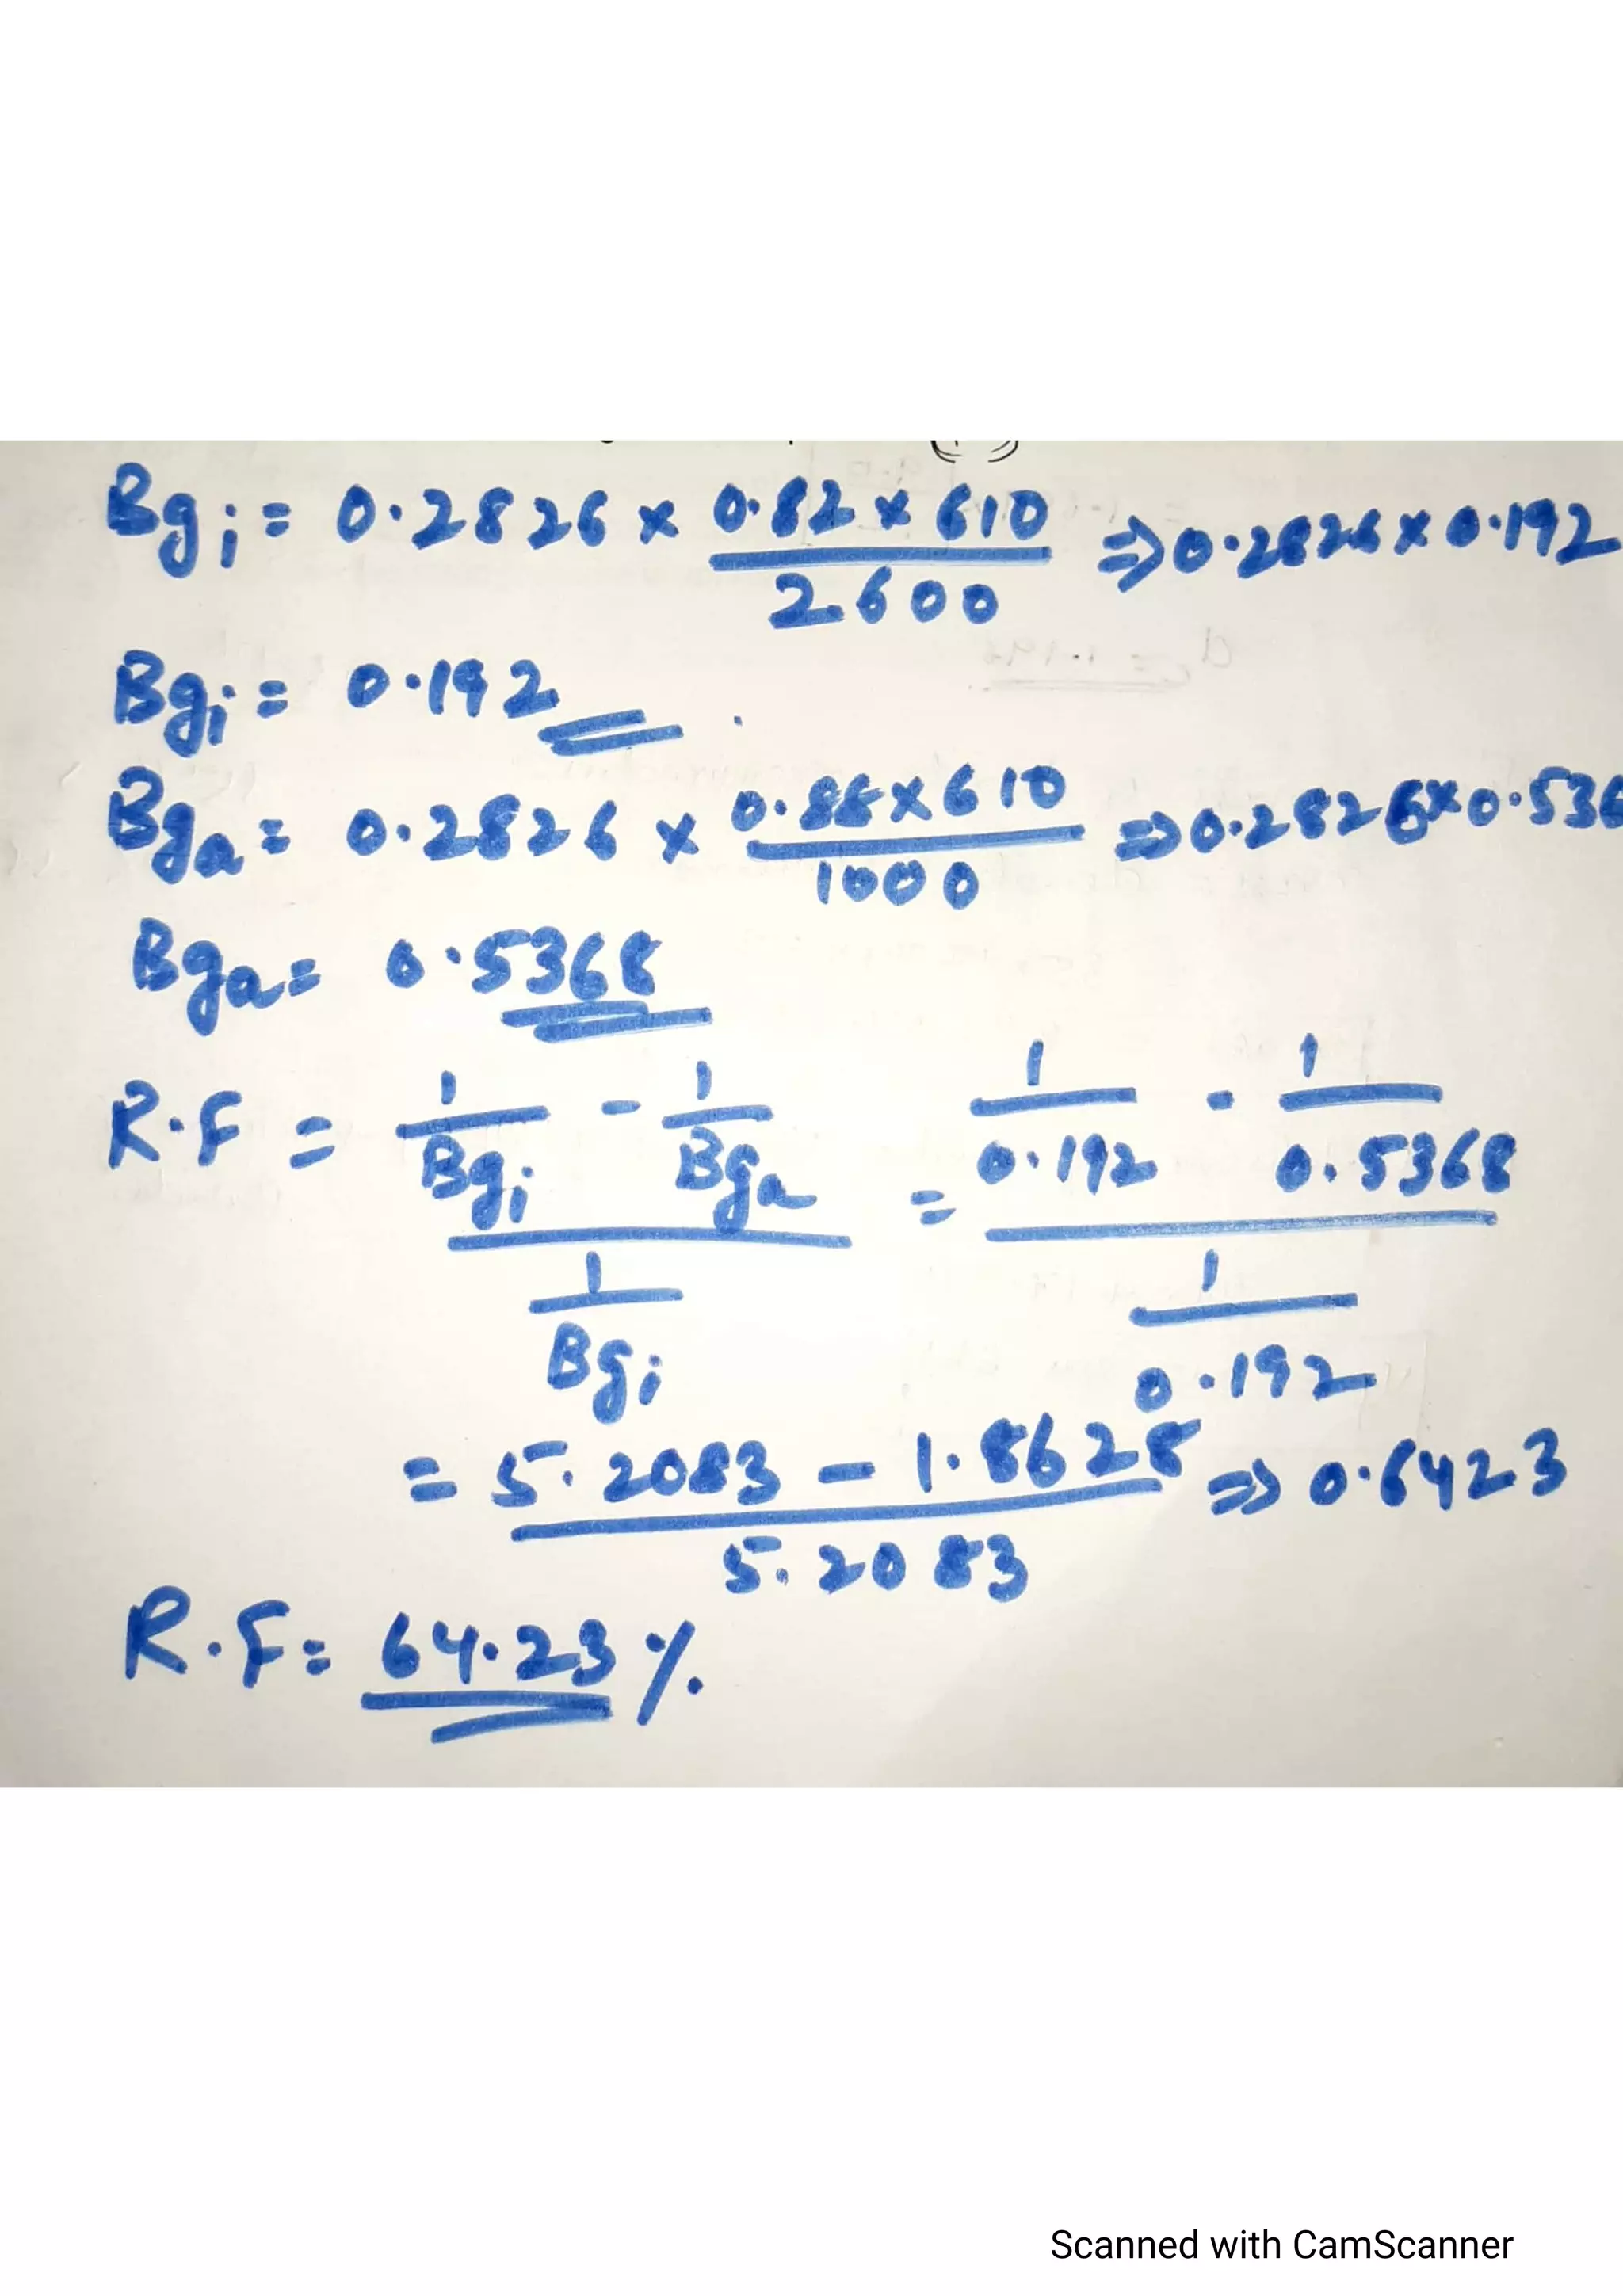 Bgi = 0.2826 x 0.82 x 610 / 2600 => 0.2826 x 0.192
Bgi = 0.192
Bga = 0.2826 x 0.88 x 610 / 1000 => 0.2826 x 0.536
Bga = 0.5368
R.F = (1/Bgi - 1/Bga) / (1/Bgi) = (1/0.192 - 1/0.5368) / (1/0.192)
= 5.2083 - 1.8628 / 5.2083 => 0.6423
R.F = 64.23 %.
Scanned with CamScanner